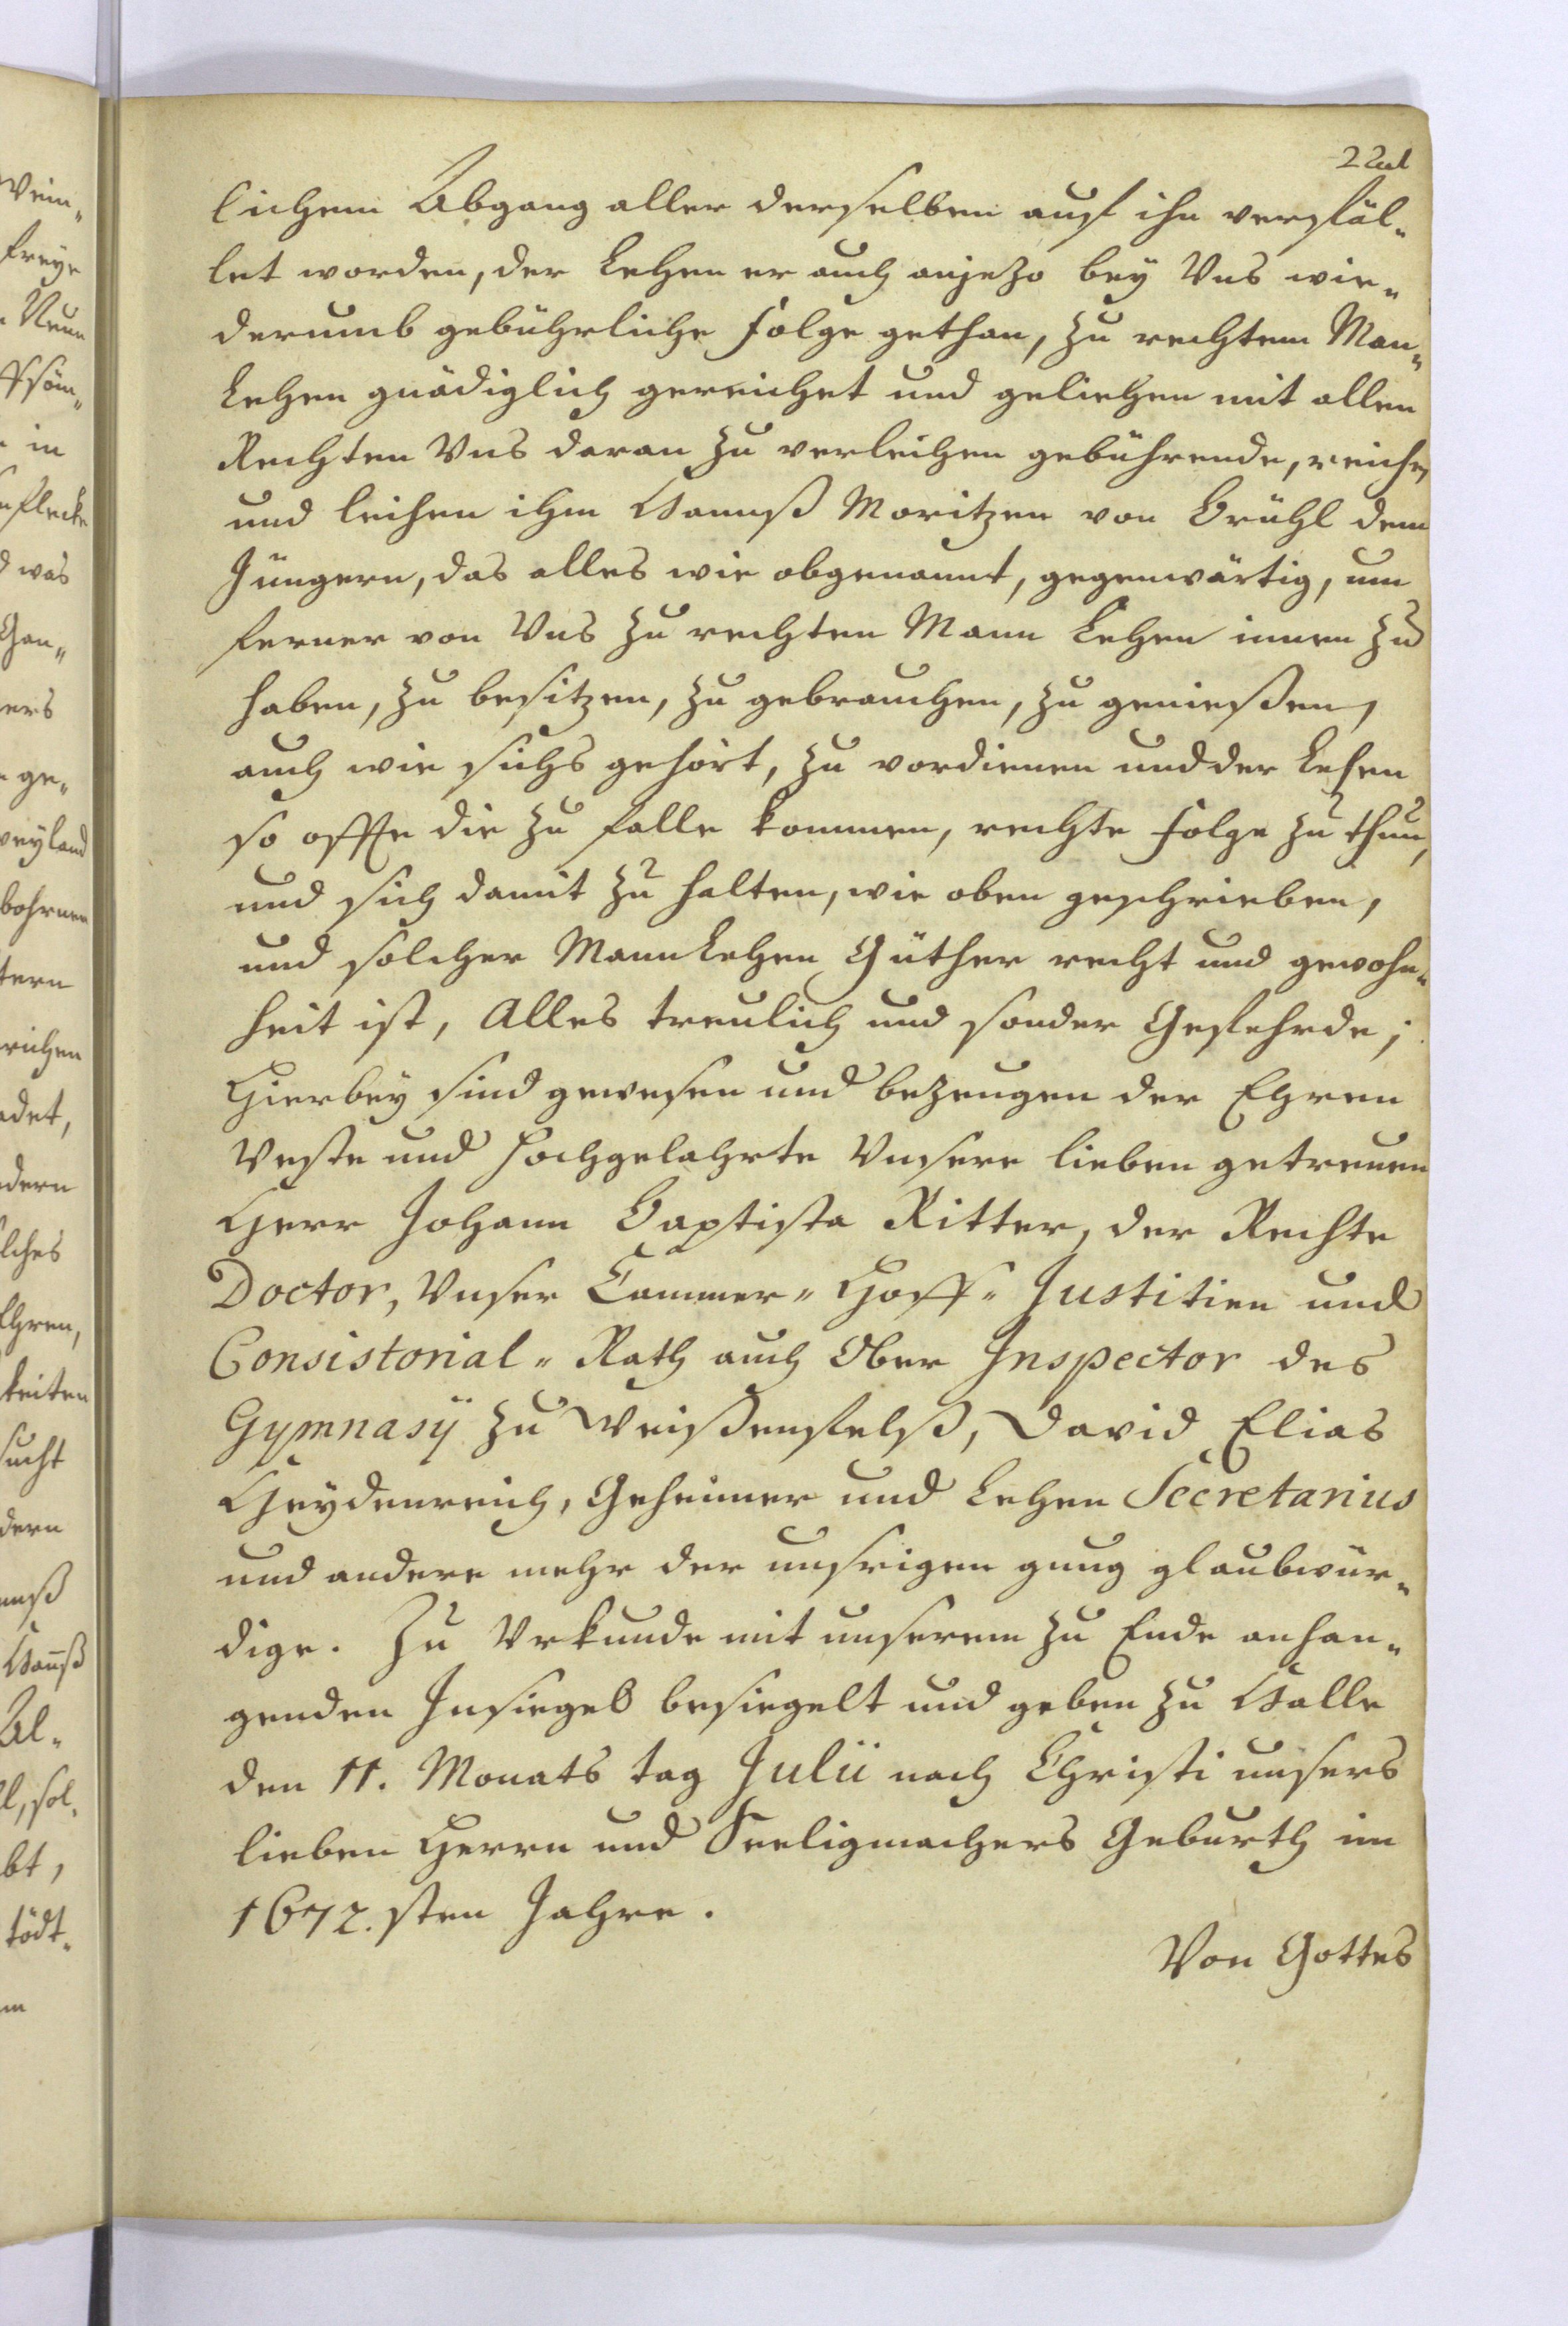 lichem Abgang aller derselben auf ihn verfäl-
let worden, der Lehen er auch anjezo bey Uns wie-
derumb gebührliche folge gethan, zu rechtem Man-
Lehen gnädiglich gereichet und geliehen mit allen
Rechten Uns daran zu verleihen gebührende, reichen
und leihen ihm Hannß Moritzen von Brühl dem
Jüngern, das alles wie obgenannt, gegenwärtig, um
ferner von Uns zu rechten Mann Lehen innen zu
haben, zu besitzen, zu gebrauchen, zu genießen,
auch wie sichs gehört, zu vordienen und der Lehen
so offte die zu falle kommen, rechte folge zu thun,
und sich damit zu halten, wie oben geschrieben,
und solcher Mannlehen Güther recht und gewohn-
heit ist, Alles treulich und sonder Gefehrde;
Hierbey sind gewesen und bezeugen der Ehren
Veste und hochgelahrte Unsere lieben getreuen
Herr Johann Baptista Ritter, der Rechte
Doctor, Unser Cammer- Hoff- Justitien und
Consistorial- Rath auch Ober Inspector des
Gymnasij zu Weißenfelß, David Elias
Heydenreich, Geheimer und Lehen Secretarius
und andere mehr der unsrigen gnug glaubwür-
dige. Zu Urkunde mit unserem zu Ende anhan-
genden Insiegel besiegelt und geben zu Halle
den 11. Monats tag Julii nach Christi unsers
lieben Herrn und Seeligmachers Geburth im
1672.sten Jahre.
Von Gottes